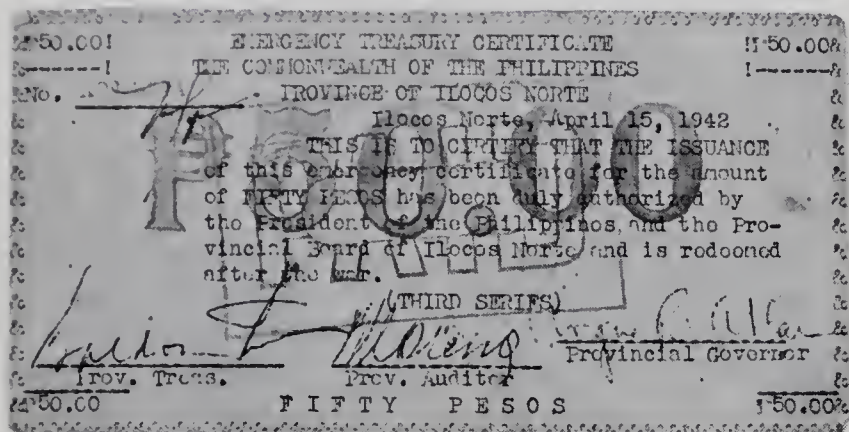 ₱50.00! EMERGENCY TREASURY CERTIFICATE !₱50.00&
&------! THE COMMONWEALTH OF THE PHILIPPINES !------&
&No. PROVINCE OF ILOCOS NORTE &
& Ilocos Norte, April 15, 1942 &
& THIS IS TO CIRTIFY THAT THE ISSUANCE &
& of this emergency certificate for the amount &
& of FIFTY PESOS has been duly authorized by &
& the President of the Philippines, and the Pro- &
& vincial Board of Ilocos Norte and is redeemed &
& after the war. &
& (THIRD SERIES) &
& Provincial Governor &
& Prov. Treas. Prov. Auditor &
&₱50.00 FIFTY PESOS ₱50.00&
₱50.00
PAID